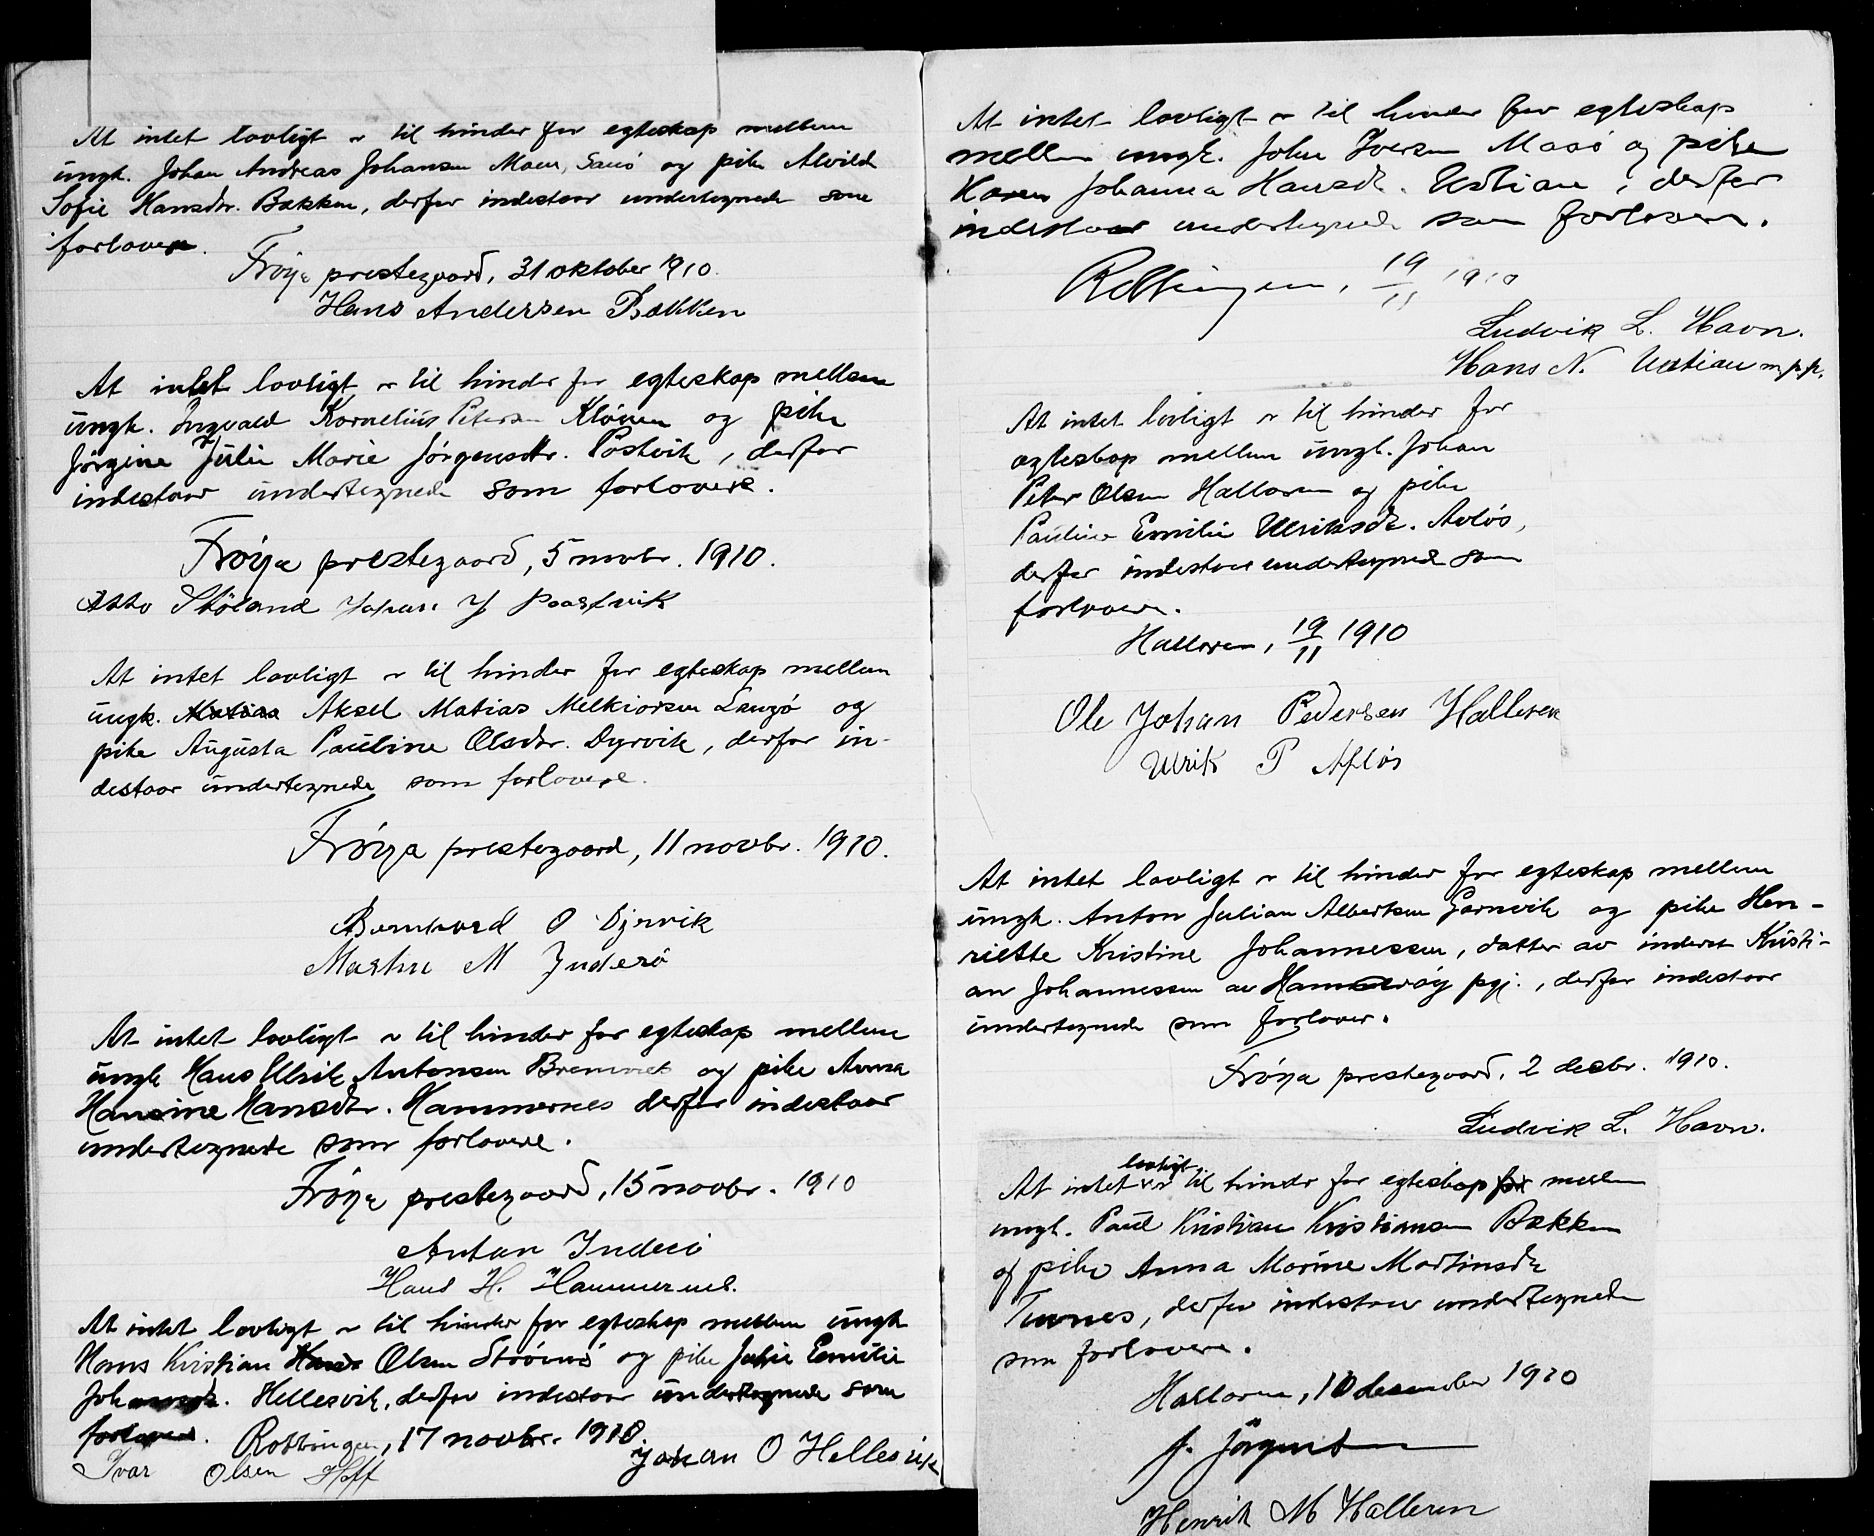 At intet lovligt er til hinder for egteskap mellem
ungk. Johan Andreas Johansen Moen, og pike Alvild
Sofie Hansdtr. Bækken, derfor indestaar undertegnede som
forlovere.
Frøya prestegaard, 31 oktober 1910.
Hans Andersen Bækken
At intet lovligt er til hinder for egteskap mellem
ungk. Ingvald Kornelius Petersen og pike
Jørgine Julie Marie Jørgensdtr. Postvik, derfor
indestaar undertegnede som forlovere.
Frøya prestegaard, 5 novbr. 1910.
Otto Stöland Johan J Paastvik
At intet lovligt er til hinder for egteskap mellem
ungk. Matias Aksel Matias Melkiorsen og
pike Augusta Pauline Olsdtr. Dyrvik, derfor in-
destaar undertegnede som forlovere.
Frøya prestegaard, 11 novbr. 1910.
Bernhard O Dyrvik
Martin M Inderö
At intet lovligt er til hinder for egteskap mellem
ungk Hans Ulrik Antonsen og pike Anna
Hansine Hansdtr. Hammernes derfor indestaar
undertegnede som forlovere.
Frøya prestegaard, 15 novbr. 1910
Anton
Hans H. Hammernes.
At intet lovligt er til hinder for egteskap mellem ungk
Hans Kristian Olsen Strömö og pike Julie Emilie
Johansdtr. Hellesvik, derfor indestaar undertegnede som
forlovere. Rottingen, 17 novbr. 1910.
Ivar Olsen Hoff Johan O Hellesvik
At intet lovligt er til hinder for egteskap
mellem ungk. John Iversen Maasö og pike
Karen Johanna Hansdtr. Uttian, derfor
indestaar undertegnede som forlovere.
Rottingen, 19/11 1910
Ludvik L. Havn.
Hans N. Uttian m.p.p.
At intet lovligt er til hinder for
egteskap mellem ungk. Johan
Peter Olsen Hallaren og pike
Pauline Emilie Ulriksdtr. Avløs,
derfor indestaar undertegnede som
forlovere.
Hallaren, 19/11 1910
Ole Johan Pedersen Halleren
Ulrik P Afløs
At intet lovligt er til hinder for egteskap mellem
ungk. Anton Julian Albertsen Garnvik og pike Hen-
riette Kristine Johannessen, datter av inderst Kristi-
an Johannessen av Hammerøy pgj., derfor indestaar
undertegnede som forlover.
Frøya prestegaard, 2 decbr. 1910.
Ludvik L. Havn.
At intet lovligt er til hinder for egteskap for mellem
ungk. Paul Kristian Kristiansen Bækken
og pike Anna Marine Martinsdtr
derfor indestaar undertegnede
som forlovere.
Hallaren, 10 desember 1910
J. Jörgensen
Henrik M Halleren